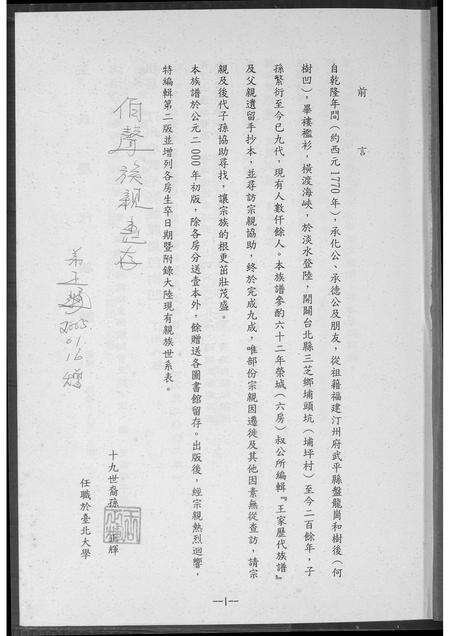 前言
自乾隆年間（約西元1770年），承化公、承德公及朋友，從祖籍福建汀州府武平縣盤龍崗和樹後（何
樹凹），畢褸襤衫，橫渡海峽，於淡水登陸，開闢台北縣三芝鄉埔頭坑（埔坪村）至今二百餘年，子
孫繁衍至今已九代，現有人數仟餘人。本族譜參酌六十二年榮城（六房）叔公所編輯『王家歷代族譜』
及父親遺留手抄本，並尋訪宗親協助，終於完成九成，唯部份宗親因遷徙及其他因素無從查訪，請宗
親及後代子孫協助尋找，讓宗族的根更茁壯茂盛。
本族譜於公元二000年初版，除各房分送壹本外，餘贈送各圖書館留存。出版後，經宗親熱烈迴響，
特編輯第二版並增列各房生卒日期暨附錄大陸現有親族世系表。
十九世裔孫 王正輝
任職於臺北大學
伯聲族親惠存
弟王
2005
01.16
贈
--1--